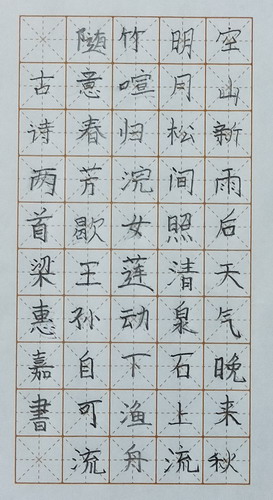 空山新雨后天气晚来秋
明月松间照清泉石上流
竹喧归浣女莲动下渔舟
随意春芳歇王孙自可流
古诗两首梁惠嘉書